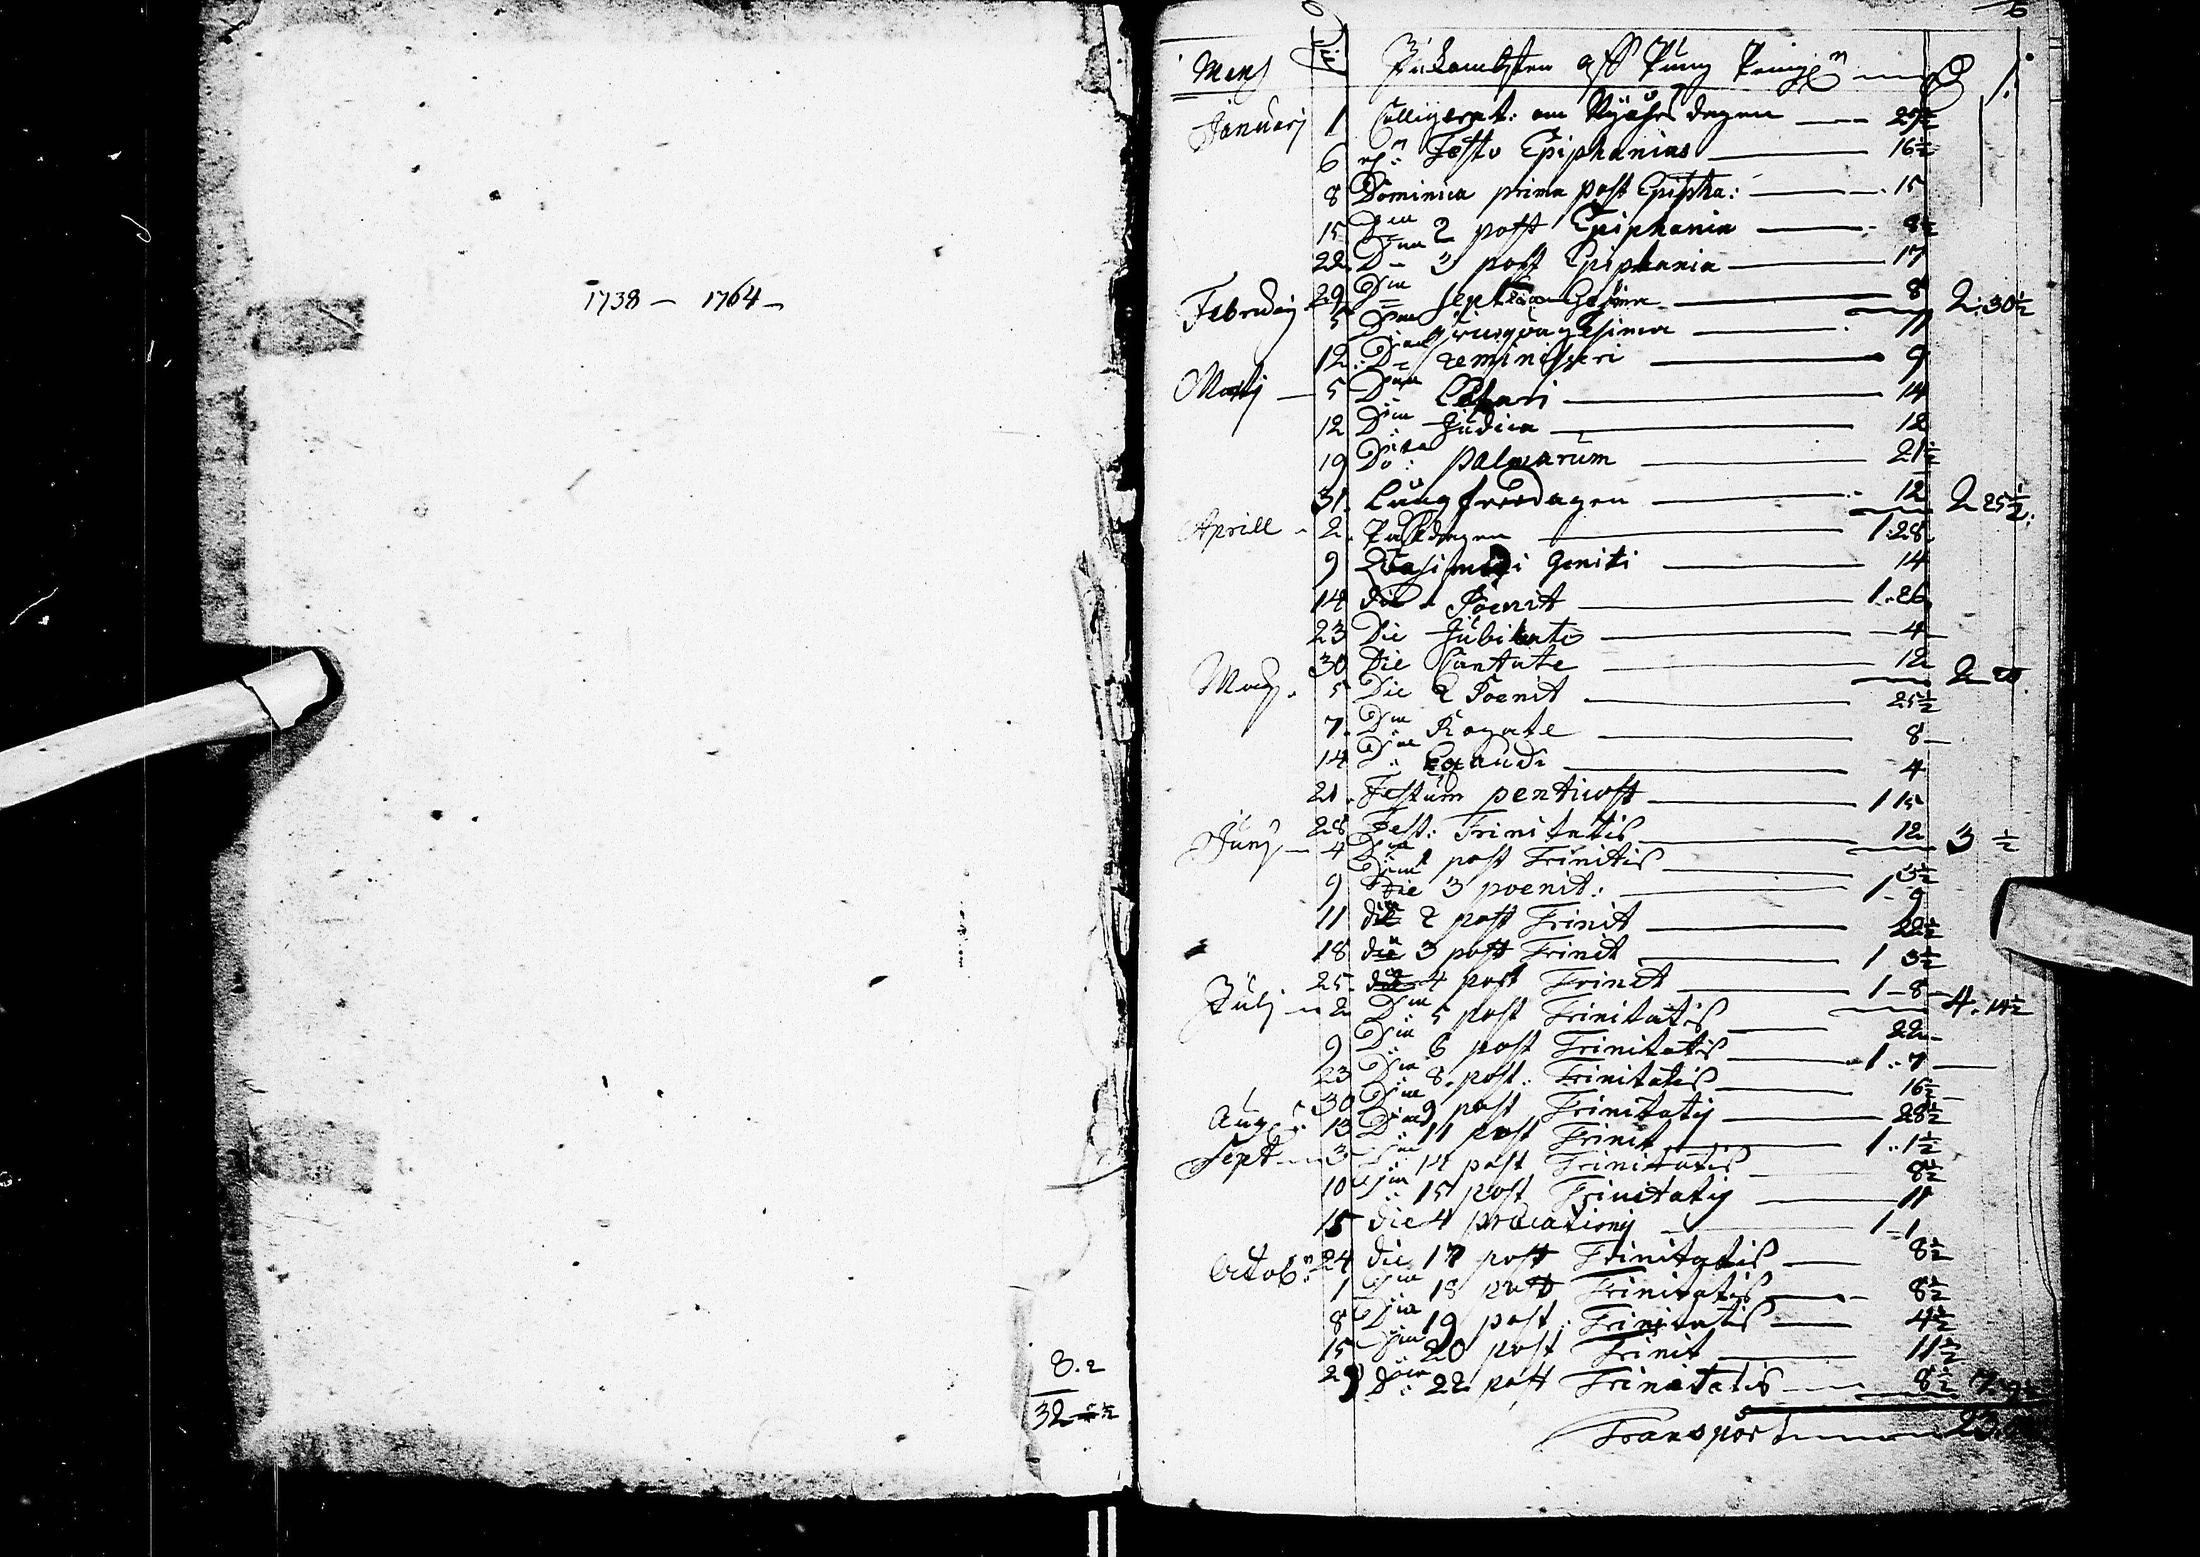 1738 - 1764 -
8. 2
32
Mens Die Inkombsten aff Pung
Januarj 1 Colligerat: om Nyåhrsdagen 29½
6 Festo Epiphanias 16½
8 Dominica prima post Epipha: 15
15 Dnica 2 post Epiphania 8½
22 Dnica 3 post Epiphania 17
29 Dnica 8 2:30½
Februarj 5 Dnica 11
12 Dnica reminisceri 9
Martj 5 Dnica Letari 14
12 Dnica Judica 12
19 Do: palmarum 21½
31. Långfredagen 12 2 25½
Aprill 2 Påskdagen 1:28
9 Quasimodi Geniti 14
14 die 1 Poenit 1:26
23 Die Jubilate 4
30 Die Cantate 12 2 20
Maj 5 Die 2 Poenit 25½
7. Dnica Rogate 8
14 Dnica Exaudi 4
21 Festum penticost 1 15
28 Fest: Trinitatis 12 3 ½
Junj 4 Dnica 1 post Trinitis 3½
9 Die 3 poenit: 1 - 9
11 die 2 post Trinit 22½
18 die 3 post Trinit 1 3½
25 4 post Trinit 1 - 8 4. 14½
Julj 2 Dnica 5 post Trinitatis 22
9 Dnica 6 post Trinitatis 1 . 7
23 Dnica 8. post. Trinitatis 16½
30 Dnica 9 post Trinitatis 28½
Aug 13 Dnica 11 post Trinit 1 . 1½
Sept 3 Dnica 14 post Trinitatis 8½
10 Dnica 15 post Trinitatis 11
15 die 4 precationis 1 - 1
24 die 17 post Trinitatis 8½
Octobr 1 Dnica 18 post Trinitatis 8½
8 Dnica 19 post Trinitatis 4½
15 Dnica 20 post Trinit 11½
29 Dnica 22 post Trinitatis 8½
Transport